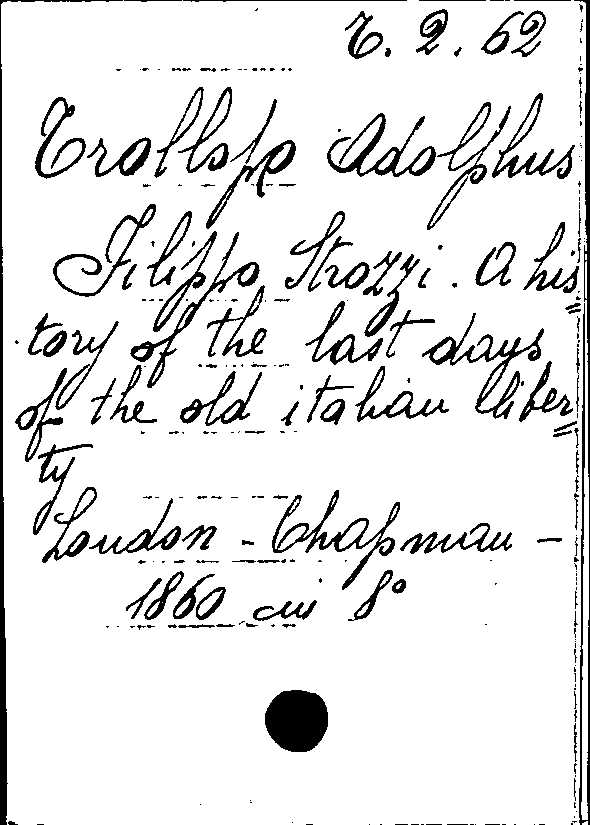 T. 2. 62
Trollope Adolphus
Filippo Strozzi. A his=
tory of the last days
of the old italian liber=
ty
London - Chapman -
1860 in 8°